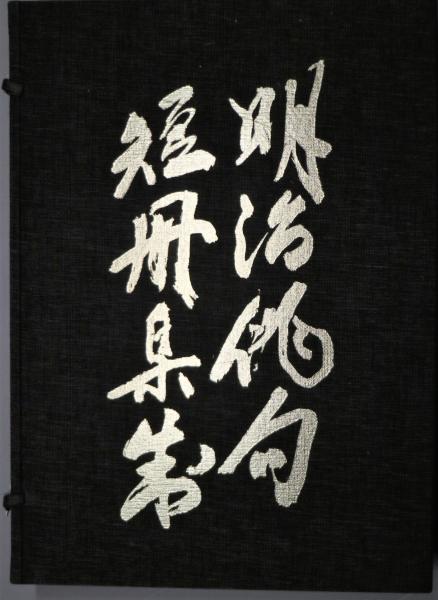 明治俳句
短冊集